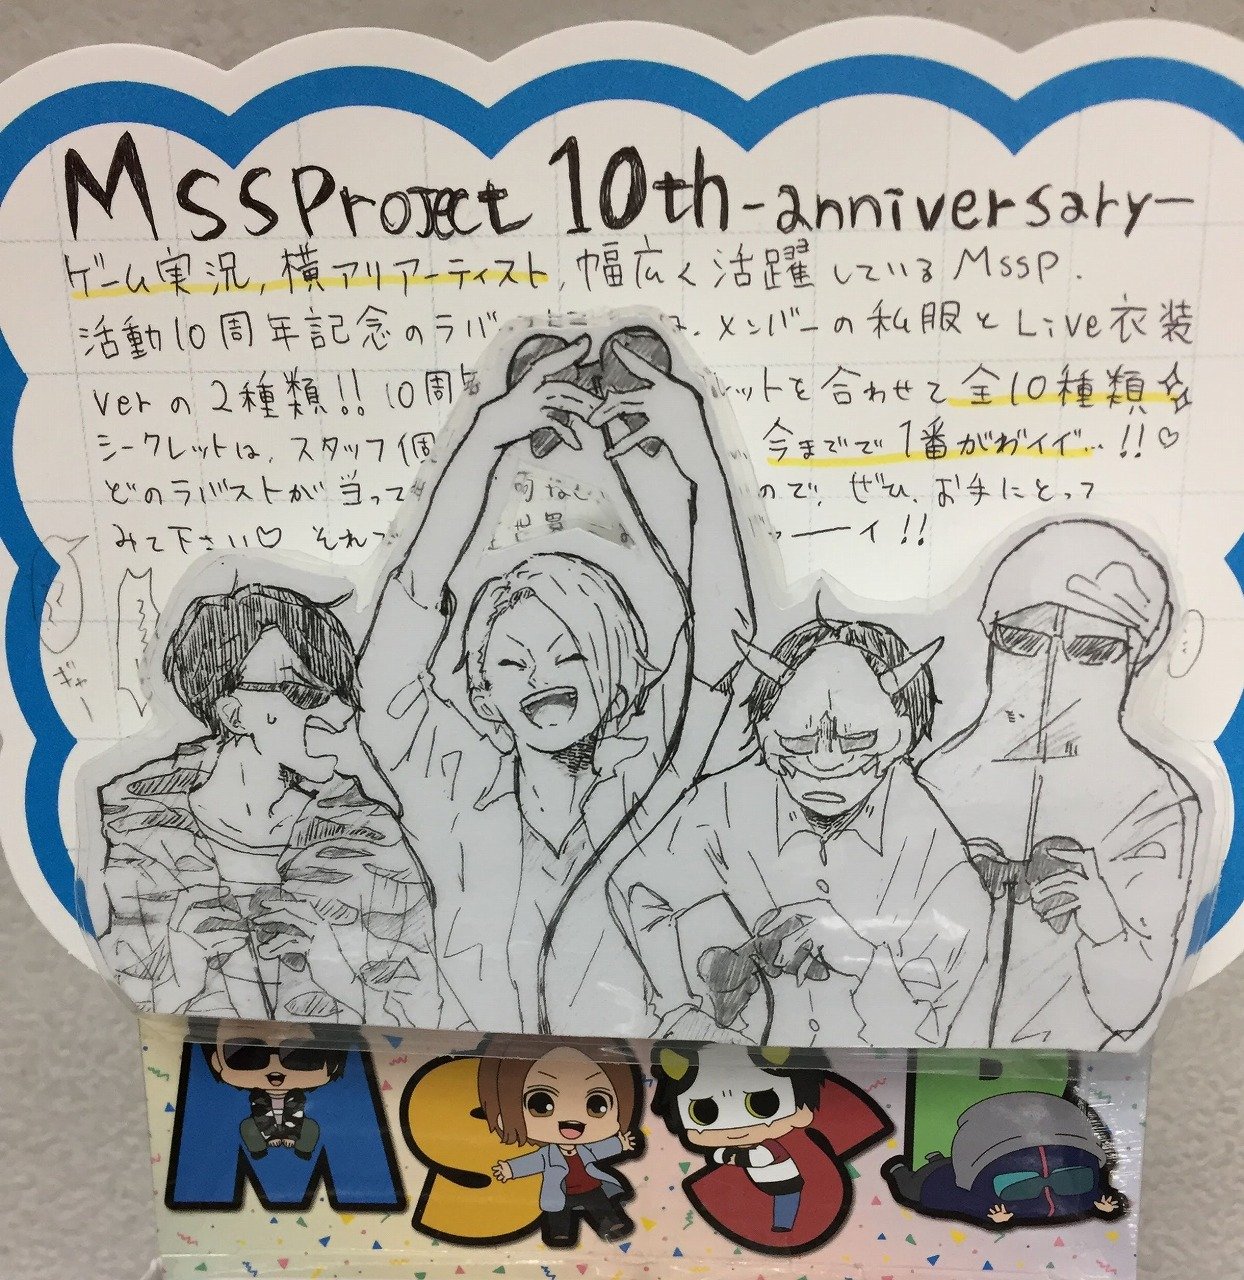 MSSProject 10th -anniversary-
ゲーム実況, 横アリアーティスト, 幅広く活躍しているMSSP.
活動10周年記念のラバ メンバーの私服とLive衣装
verの2種類!! 10周 ットを合わせて全10種類
シークレットは、スタッフ個 今までで1番かわイイ…!!♡
どのラバストが当って ので、ぜひ、お手にとって
みて下さい♡ それ ーイ!!
ギャー
M S S P